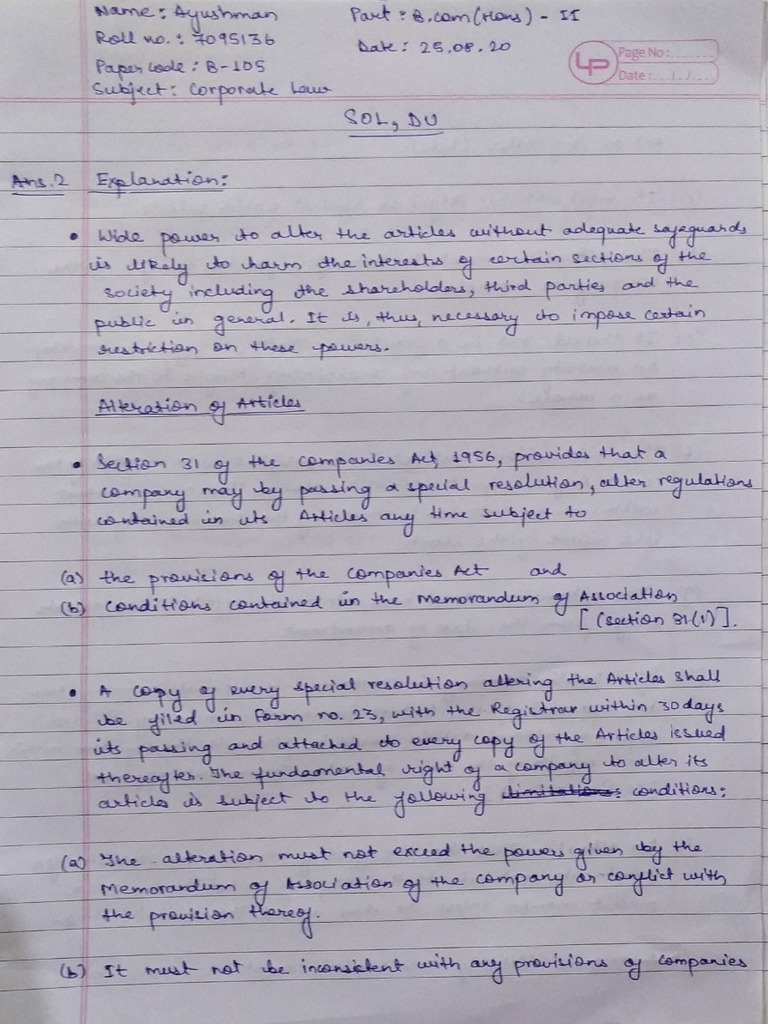 Name: Ayushman Part: B.com(Hons) - II
Roll no.: 7095136 Date: 25.08.20
Paper code: B-105
Subject: Corporate Law
LP Page No:.......
Date:...../...../.....
SOL, DU
Ans.2 Explanation:
• Wide power to alter the articles without adequate safeguards
is likely to harm the interests of certain sections of the
society including the shareholders, third parties and the
public in general. It is, thus, necessary to impose certain
restriction on these powers.
Alteration of Articles
• Section 31 of the Companies Act, 1956, provides that a
company may by passing a special resolution, alter regulations
contained in its Articles any time subject to
(a) the provisions of the Companies Act and
(b) Conditions contained in the Memorandum of Association
[(Section 31(1)].
• A copy of every special resolution altering the Articles shall
be filed in Form no. 23, with the Registrar within 30 days
its passing and attached to every copy of the Articles issued
thereafter. The fundamental right of a company to alter its
articles is subject to the following limitations: conditions:
(a) The alteration must not exceed the powers given by the
Memorandum of Association of the company or conflict with
the provision thereof.
(b) It must not be inconsistent with any provisions of companies